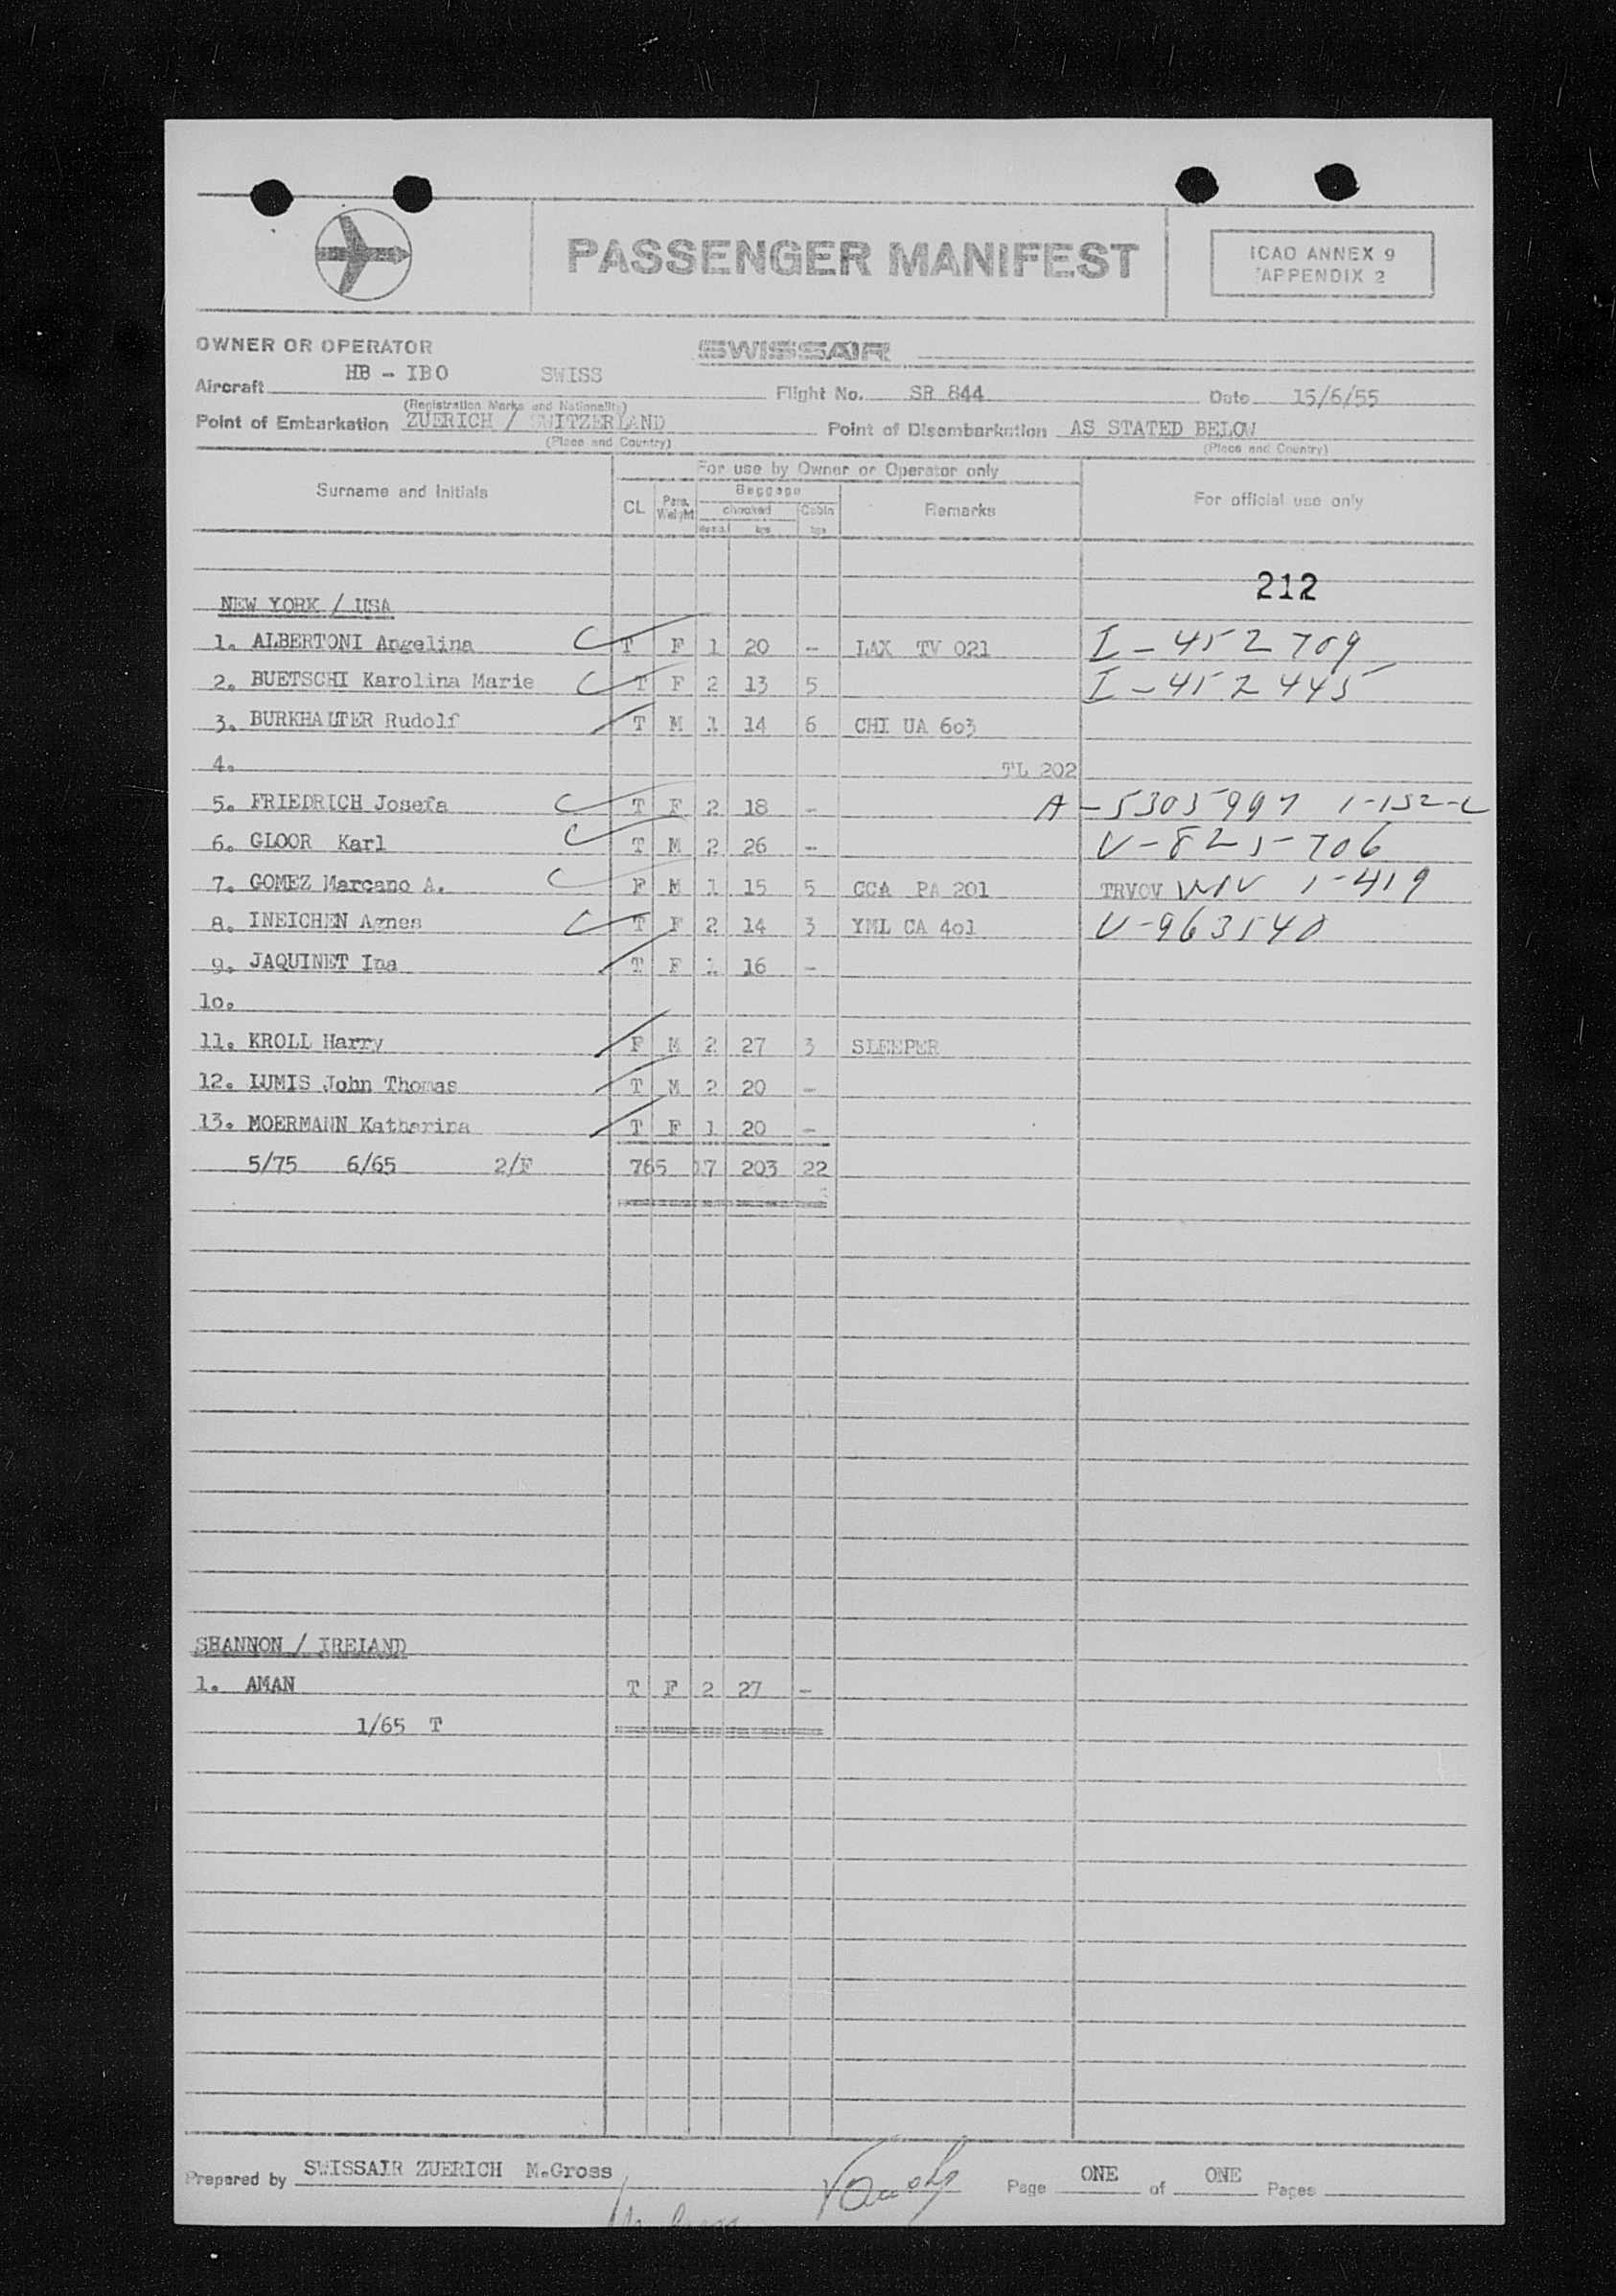 PASSENGER MANIFEST
ICAO ANNEX 9
APPENDIX 2
OWNER OR OPERATOR SWISSAIR
Aircraft HB - IBO SWISS Flight No. SR 844 Date 15/6/55
(Registration Marks and Nationality)
Point of Embarkation ZUERICH / SWITZERLAND Point of Disembarkation AS STATED BELOW
(Place and Country) (Place and Country)
For use by Owner or Operator only
Surname and Initials CL Pass. Weight Baggage checked kgs Cabin kgs Remarks For official use only
212
NEW YORK / USA
1. ALBERTONI Angelina C T F 1 20 - LAX TV 021 I - 452 709
2. BUETSCHI Karolina Marie C T F 2 13 5 I - 452 445
3. BURKHALTER Rudolf T M 1 14 6 CHI UA 6o3
4. TL 202
5. FRIEDRICH Josefa C T F 2 18 - A - 5305997 1-152-L
6. GLOOR Karl C T M 2 26 - V - 825-706
7. GOMEZ Marcano A. C F M 1 15 5 CCA PA 201 TRVOV WIV 1-419
8. INEICHEN Agnes C T F 2 14 3 YML CA 4o1 V-963540
9. JAQUINET Ina T F 1 16 -
1o.
11. KROLL Harry F M 2 27 3 SLEEPER
12. LUMIS John Thomas T M 2 20 -
13. MOERMANN Katharina T F 1 20 -
5/75 6/65 2/F 765 17 203 22
SHANNON / IRELAND
1. AMAN T F 2 27 -
1/65 T
Prepared by SWISSAIR ZUERICH M.Gross Page ONE of ONE Pages